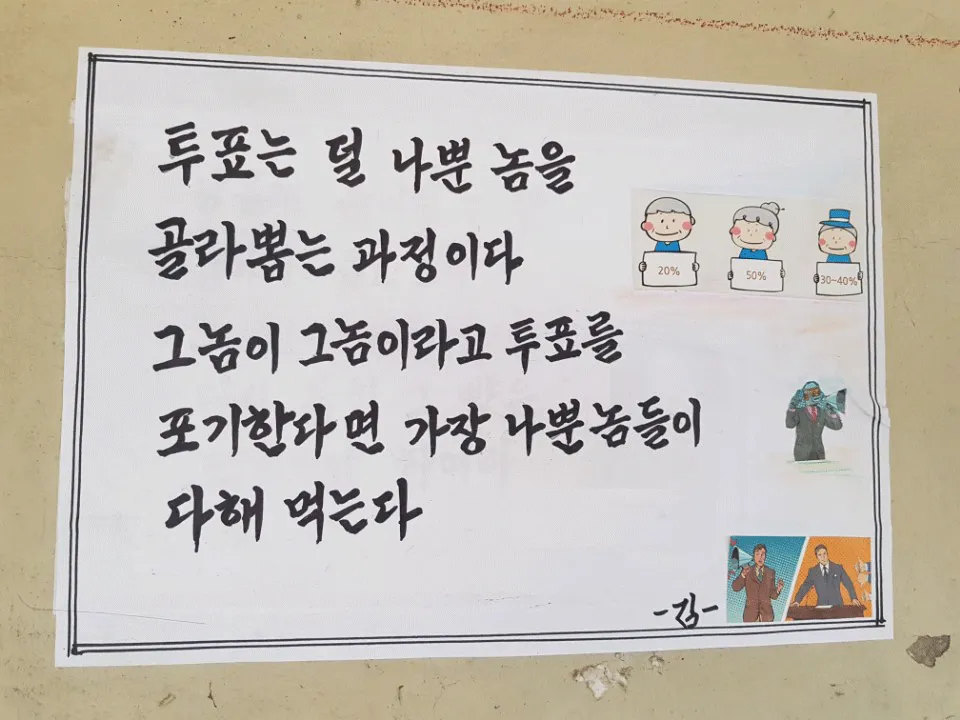 투표는 덜 나뿐 놈을
골라뽐는 과정이다
그놈이 그놈이라고 투표를
포기한다면 가장 나뿐놈들이
다해 먹는다
20%
50%
30~40%
-김-